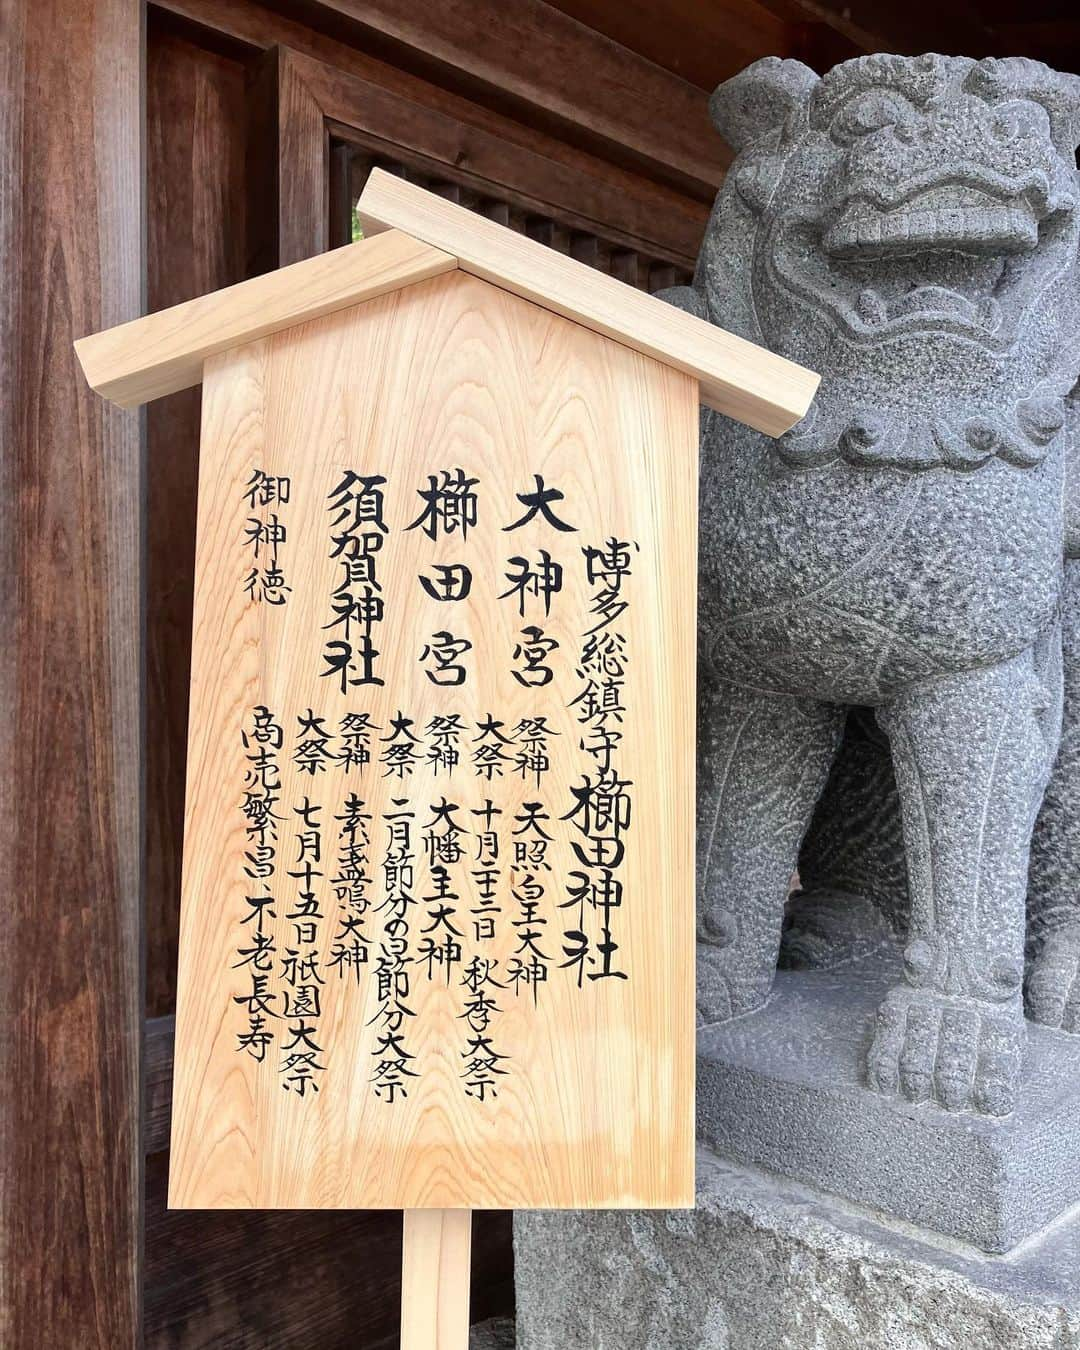 博多総鎮守櫛田神社
大神宮 祭神 天照皇大神
大祭 十月二十三日 秋季大祭
櫛田宮 祭神 大幡主大神
大祭 二月節分の日節分大祭
須賀神社 祭神 素盞嗚大神
大祭 七月十五日祇園大祭
御神徳 商売繁昌、不老長寿